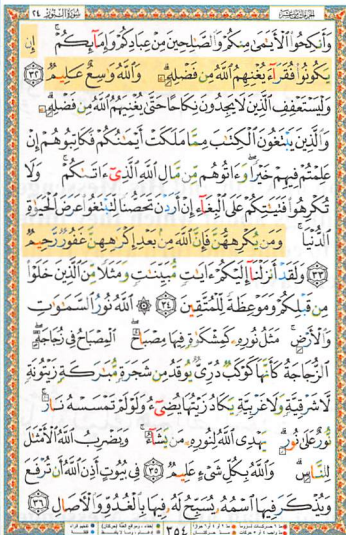 سُورَةُ النُّورِ ٢٤
وَأَنكِحُوا۟ ٱلْأَيَـٰمَىٰ مِنكُمْ وَٱلصَّـٰلِحِينَ مِنْ عِبَادِكُمْ وَإِمَآئِكُمْ ۚ إِن
يَكُونُوا۟ فُقَرَآءَ يُغْنِهِمُ ٱللَّهُ مِن فَضْلِهِۦ ۗ وَٱللَّهُ وَٰسِعٌ عَلِيمٌ ٣٢
وَلْيَسْتَعْفِفِ ٱلَّذِينَ لَا يَجِدُونَ نِكَاحًا حَتَّىٰ يُغْنِيَهُمُ ٱللَّهُ مِن فَضْلِهِۦ ۗ
وَٱلَّذِينَ يَبْتَغُونَ ٱلْكِتَـٰبَ مِمَّا مَلَكَتْ أَيْمَـٰنُكُمْ فَكَاتِبُوهُمْ إِنْ
عَلِمْتُمْ فِيهِمْ خَيْرًا ۖ وَءَاتُوهُم مِّن مَّالِ ٱللَّهِ ٱلَّذِىٓ ءَاتَىٰكُمْ ۚ وَلَا
تُكْرِهُوا۟ فَتَيَـٰتِكُمْ عَلَى ٱلْبِغَآءِ إِنْ أَرَدْنَ تَحَصُّنًا لِّتَبْتَغُوا۟ عَرَضَ ٱلْحَيَوٰةِ
ٱلدُّنْيَا ۚ وَمَن يُكْرِههُّنَّ فَإِنَّ ٱللَّهَ مِنۢ بَعْدِ إِكْرَٰهِهِنَّ غَفُورٌ رَّحِيمٌ
٣٣ وَلَقَدْ أَنزَلْنَآ إِلَيْكُمْ ءَايَـٰتٍ مُّبَيِّنَـٰتٍ وَمَثَلًا مِّنَ ٱلَّذِينَ خَلَوْا۟
مِن قَبْلِكُمْ وَمَوْعِظَةً لِّلْمُتَّقِينَ ٣٤ ۞ ٱللَّهُ نُورُ ٱلسَّمَـٰوَٰتِ
وَٱلْأَرْضِ ۚ مَثَلُ نُورِهِۦ كَمِشْكَوٰةٍ فِيهَا مِصْبَاحٌ ۖ ٱلْمِصْبَاحُ فِى زُجَاجَةٍ ۖ
ٱلزُّجَاجَةُ كَأَنَّهَا كَوْكَبٌ دُرِّىٌّ يُوقَدُ مِن شَجَرَةٍ مُّبَـٰرَكَةٍ زَيْتُونَةٍ
لَّا شَرْقِيَّةٍ وَلَا غَرْبِيَّةٍ يَكَادُ زَيْتُهَا يُضِىٓءُ وَلَوْ لَمْ تَمْسَسْهُ نَارٌ ۚ
نُّورٌ عَلَىٰ نُورٍ ۗ يَهْدِى ٱللَّهُ لِنُورِهِۦ مَن يَشَآءُ ۚ وَيَضْرِبُ ٱللَّهُ ٱلْأَمْثَـٰلَ
لِلنَّاسِ ۗ وَٱللَّهُ بِكُلِّ شَىْءٍ عَلِيمٌ ٣٥ فِى بُيُوتٍ أَذِنَ ٱللَّهُ أَن تُرْفَعَ
وَيُذْكَرَ فِيهَا ٱسْمُهُۥ يُسَبِّحُ لَهُۥ فِيهَا بِٱلْغُدُوِّ وَٱلْـَٔاصَالِ ٣٦
٣٥٤